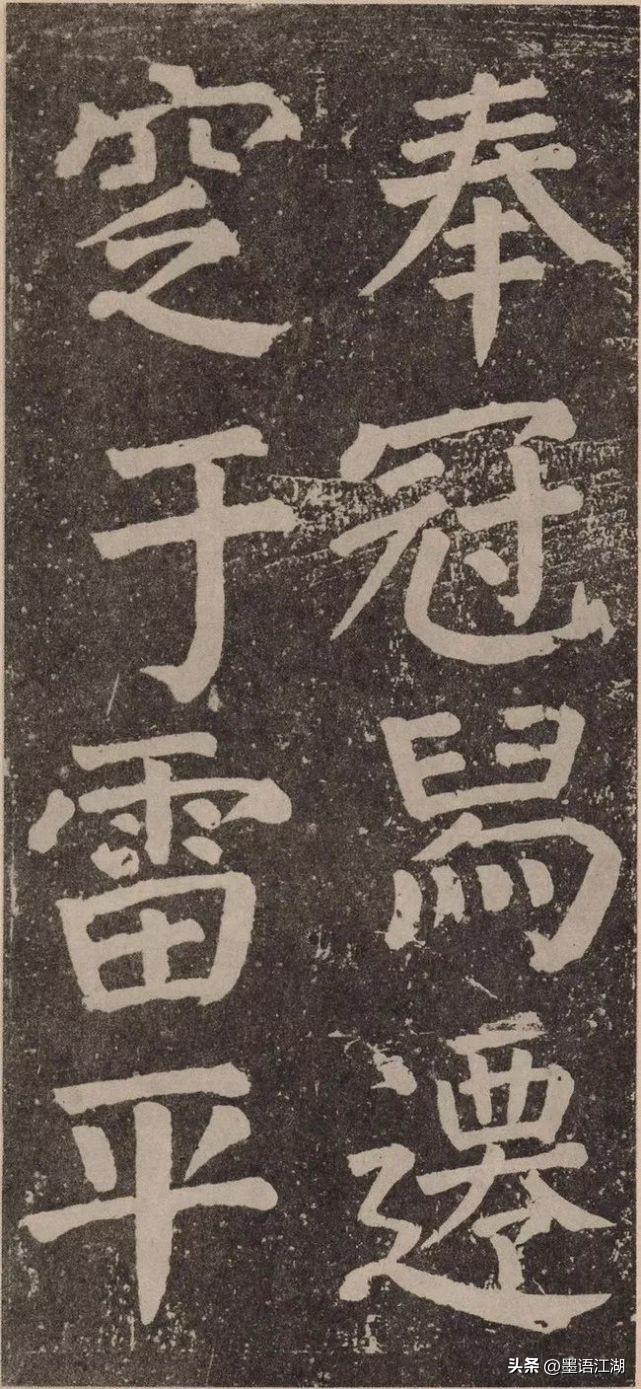 奉冠舄遷
窆于雷平
头条 @墨语江湖